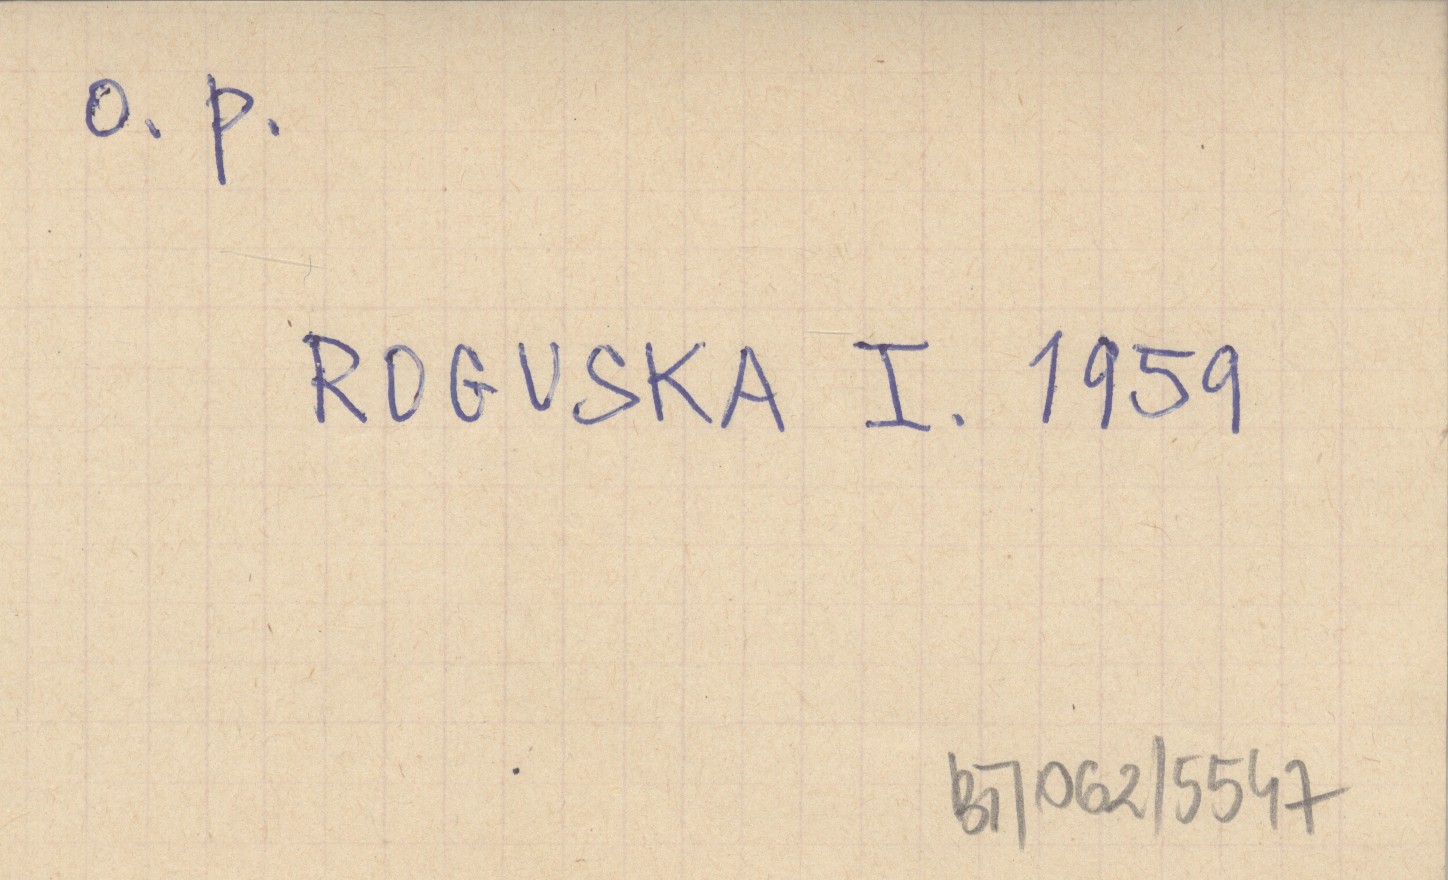 o. p.
ROGUSKA I. 1959
BT/062/5547